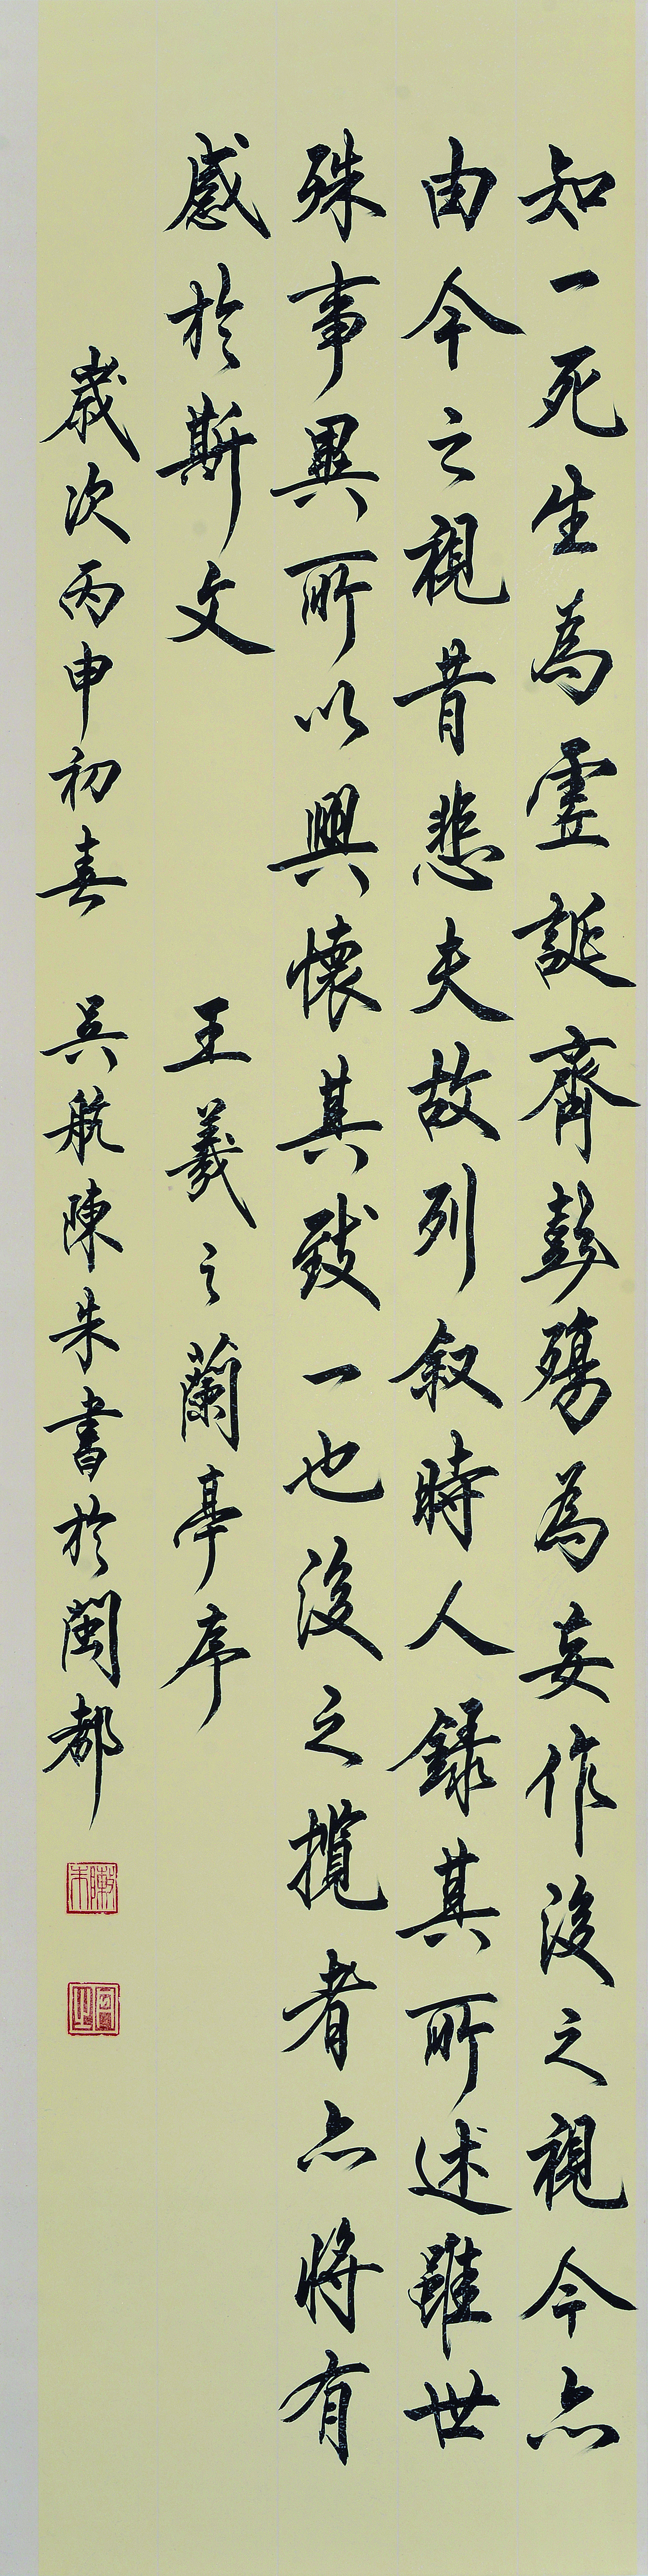 知一死生為虛誕齊彭殤為妄作後之視今亦
由今之視昔悲夫故列叙時人錄其所述雖世
殊事異所以興懷其致一也後之攬者亦將有
感於斯文 王羲之蘭亭序
歲次丙申初春 吳航陳朱書於閩都
陳朱